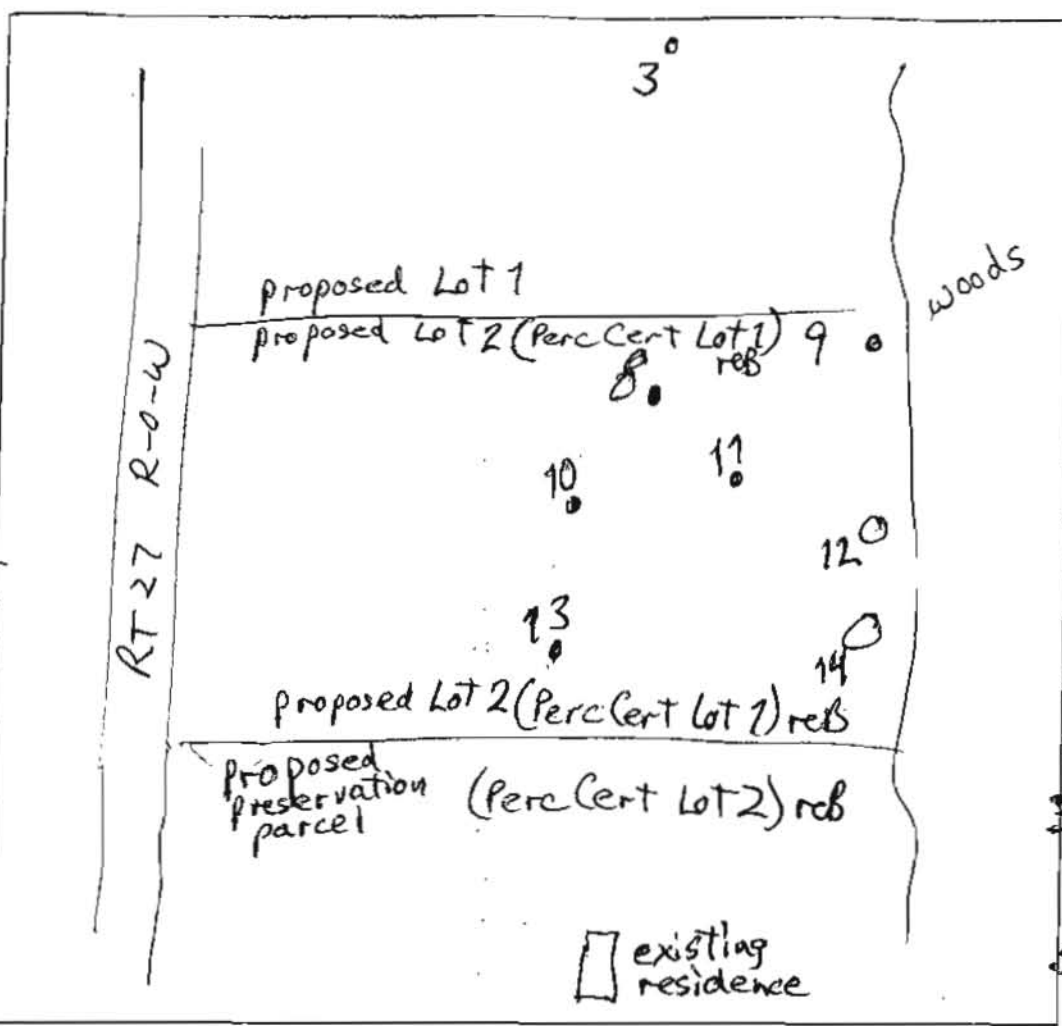 3
proposed Lot 1
woods
proposed Lot 2 (Perc Cert Lot 1) 9
reB
8
11
10
RT 27 R-O-W
12
13
14
proposed Lot 2 (Perc Cert Lot 1) reB
proposed
preservation
parcel
(Perc Cert Lot 2) reB
existing
residence